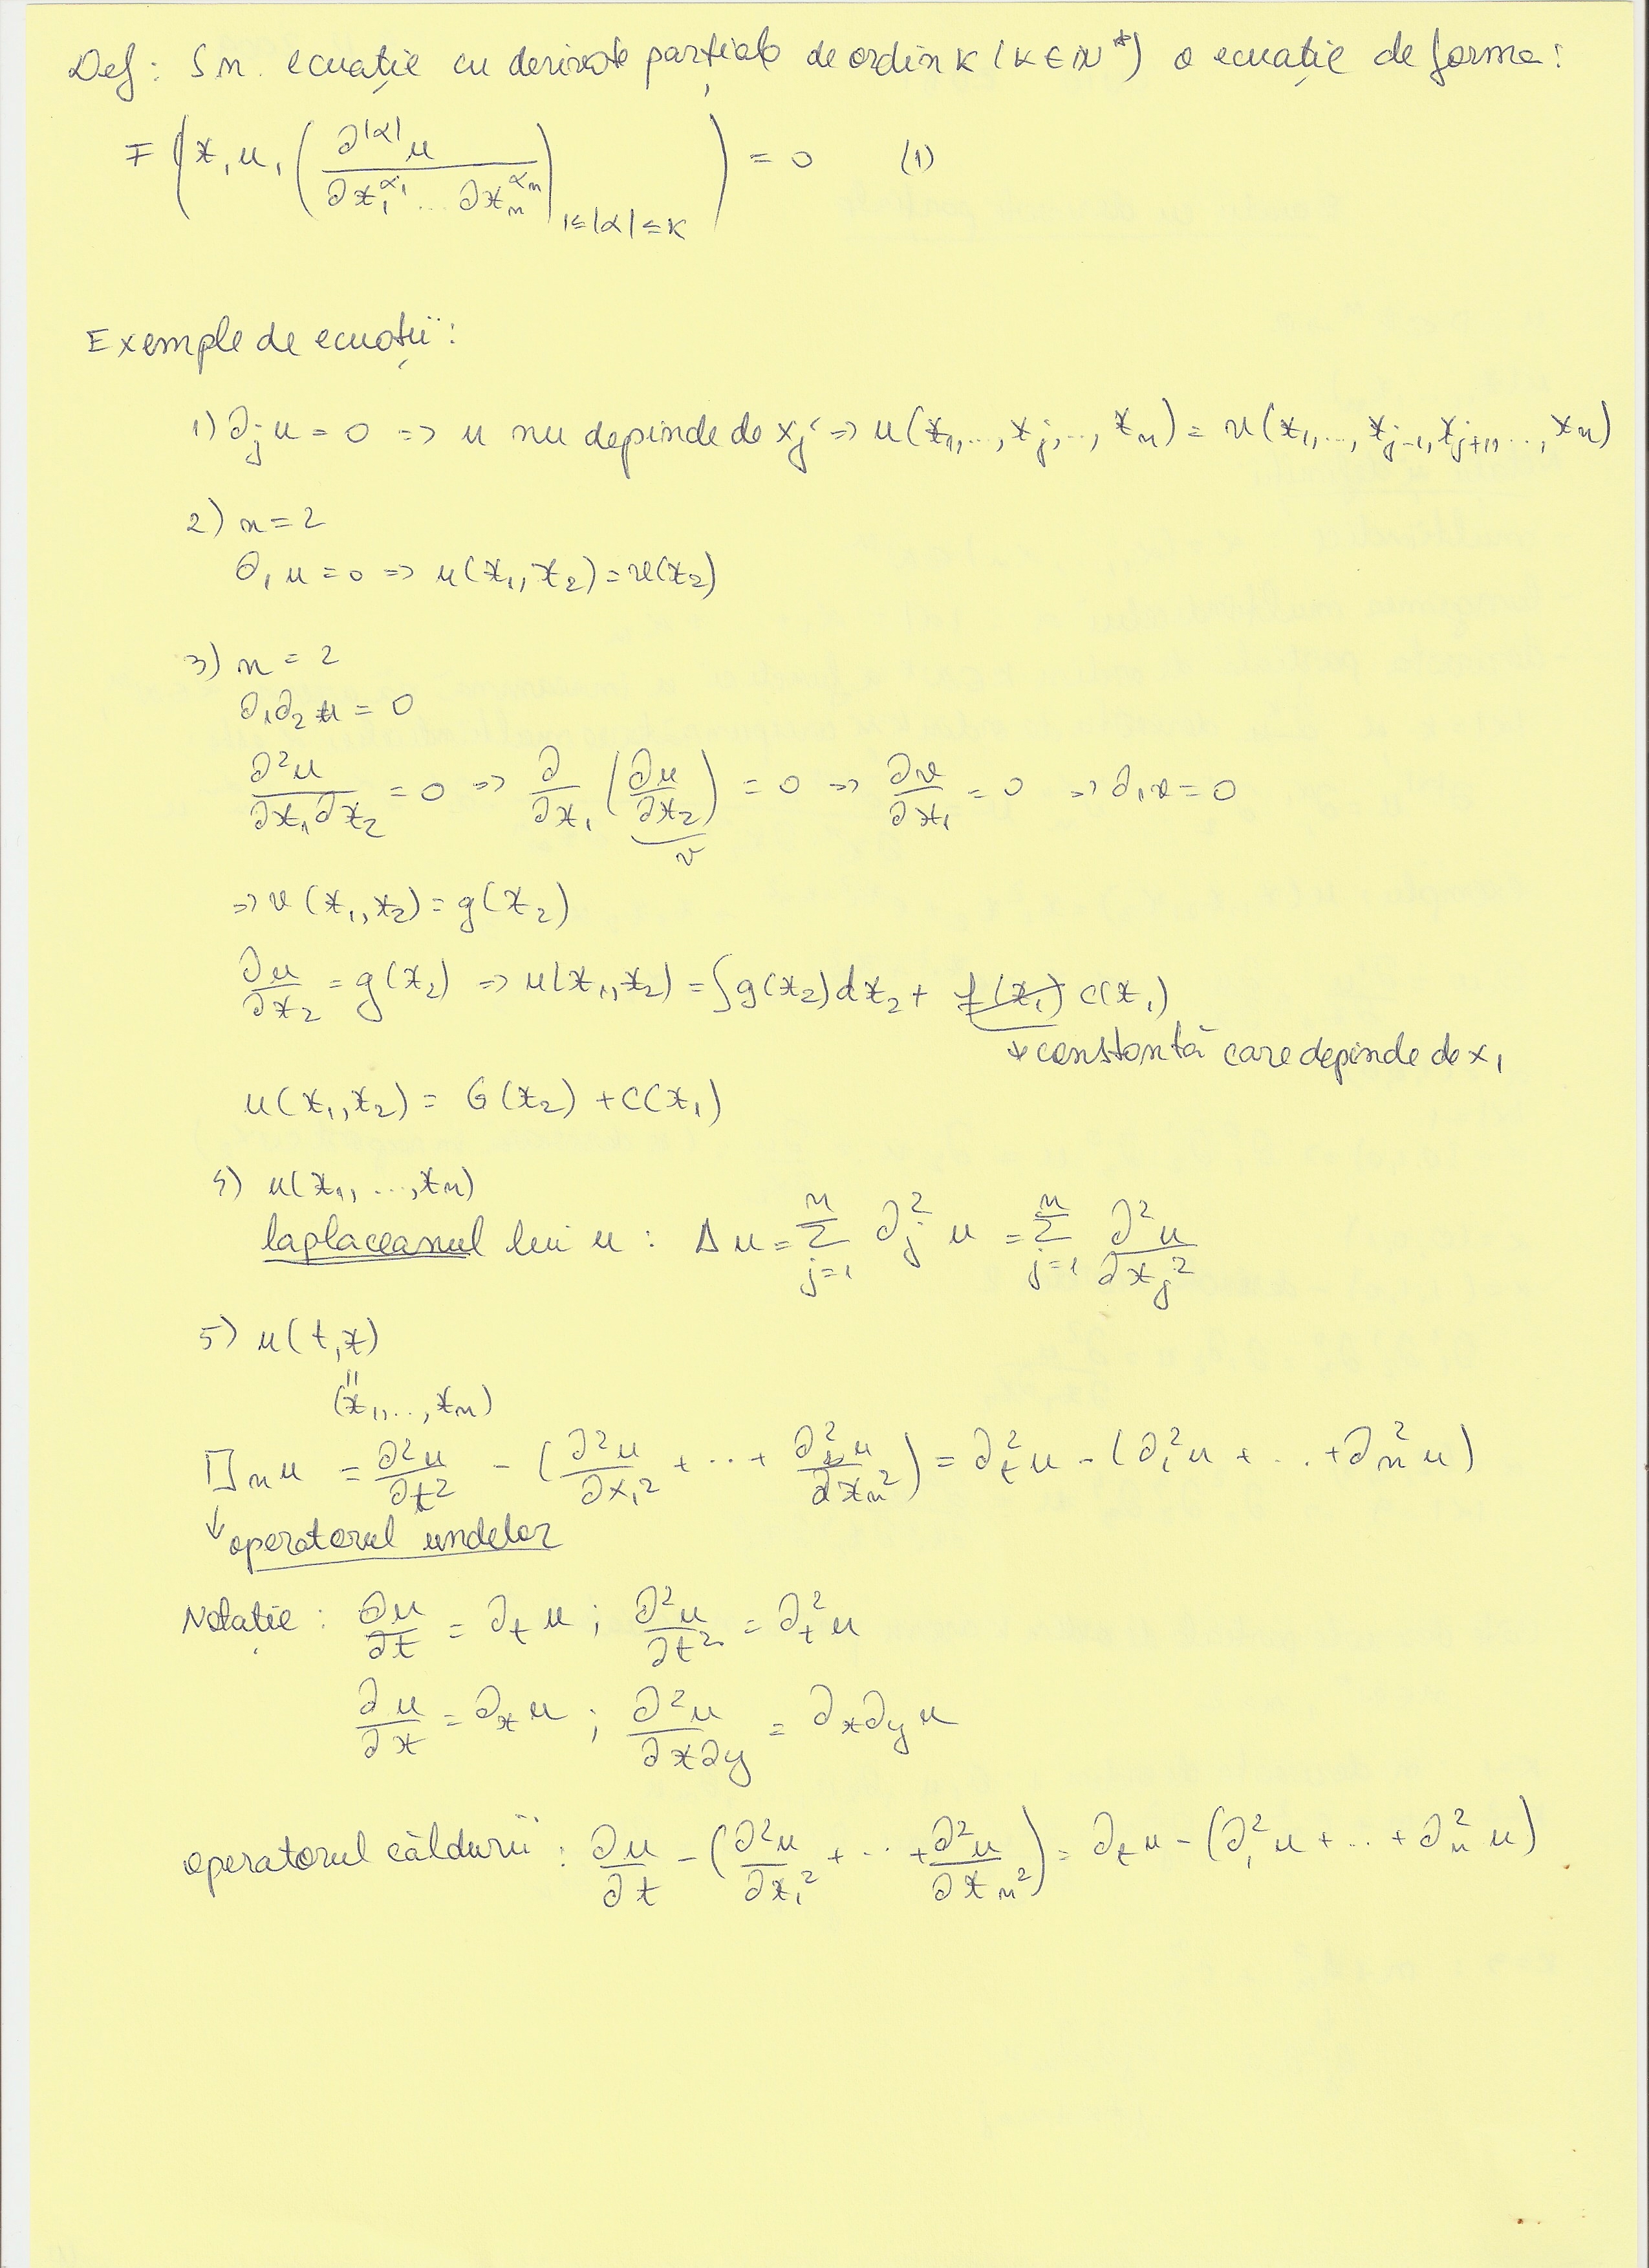 Def: S.n. ecuație cu derivate parțiale de ordin k (k ∈ N*) o ecuație de forma:
F(x, u, (∂^|α| u / ∂x₁^α₁ ... ∂xₙ^αₙ)_{1≤|α|≤k}) = 0 (1)
Exemple de ecuații:
1) ∂ⱼu = 0 => u nu depinde de xⱼ => u(x₁,..., xⱼ,..., xₙ) = v(x₁,..., xⱼ₋₁, xⱼ₊₁,..., xₙ)
2) n = 2
∂₁u = 0 => u(x₁, x₂) = v(x₂)
3) n = 2
∂₁∂₂u = 0
∂²u/∂x₁∂x₂ = 0 => ∂/∂x₁ (∂u/∂x₂) = 0 => ∂v/∂x₁ = 0 => ∂₁v = 0
v
=> v(x₁, x₂) = g(x₂)
∂u/∂x₂ = g(x₂) => u(x₁, x₂) = ∫g(x₂)dx₂ + f(x₁) C(x₁)
↓ constantă care depinde de x₁
u(x₁, x₂) = G(x₂) + C(x₁)
4) u(x₁, ..., xₙ)
laplaceanul lui u : Δu = Σ_{j=1}^{n} ∂ⱼ²u = Σ_{j=1}^{n} ∂²u/∂xⱼ²
5) u(t, x)
=
(x₁,..., xₙ)
□ₙu = ∂²u/∂t² - (∂²u/∂x₁² + ... + ∂²u/∂xₙ²) = ∂ₜ²u - (∂₁²u + ... + ∂ₙ²u)
↓ operatorul undelor
Notație : ∂u/∂t = ∂ₜu ; ∂²u/∂t² = ∂ₜ²u
∂u/∂x = ∂ₓu ; ∂²u/∂x∂y = ∂ₓ∂_y u
operatorul căldurii : ∂u/∂t - (∂²u/∂x₁² + ... + ∂²u/∂xₙ²) = ∂ₜu - (∂₁²u + ... + ∂ₙ²u)